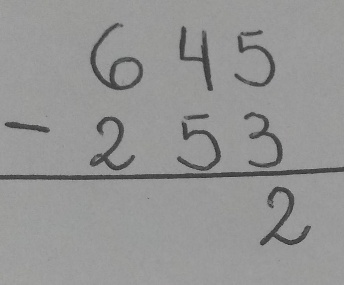 645
- 253
2